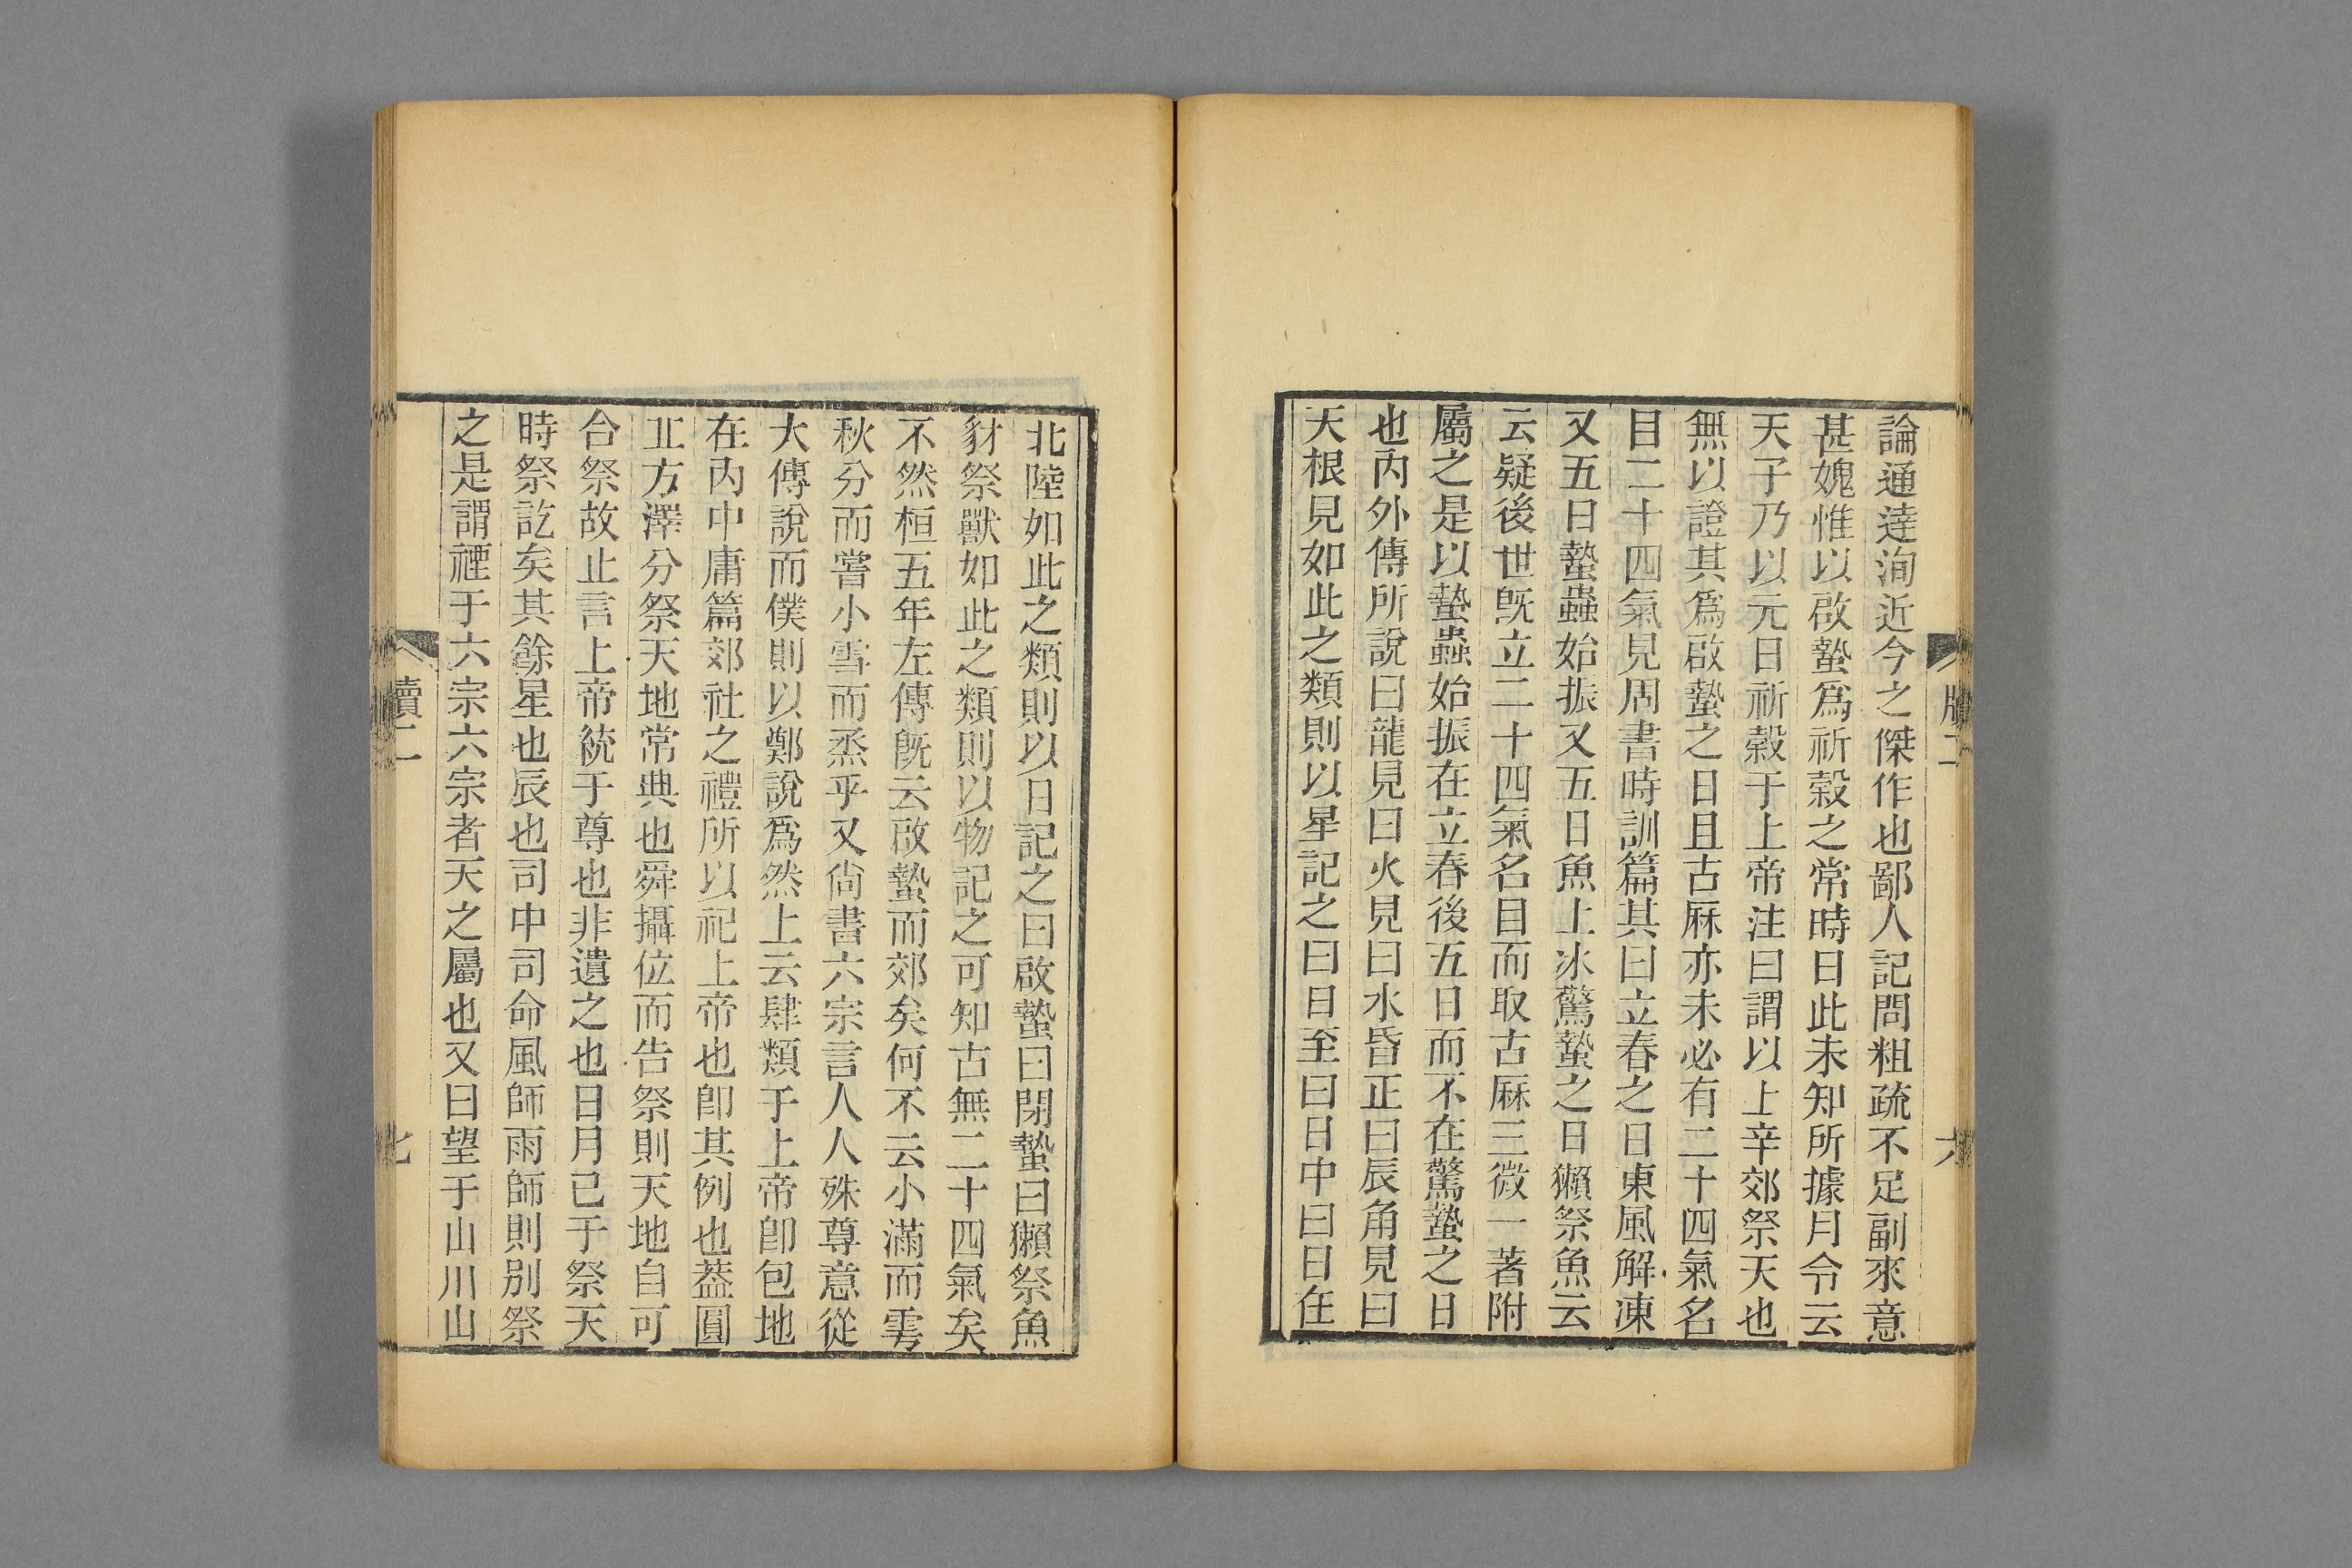 論通達洵近今之傑作也鄙人記問粗疏不足副來意
甚媿惟以啟蟄爲祈穀之常時日此未知所據月令云
天子乃以元日祈穀于上帝注曰謂以上辛郊祭天也
無以證其爲啟蟄之日且古厤亦未必有二十四氣名
目二十四氣見周書時訓篇其曰立春之日東風解凍
又五日蟄蟲始振又五日魚上冰驚蟄之日獺祭魚云
云疑後世旣立二十四氣名目而取古厤三微一著附
屬之是以蟄蟲始振在立春後五日而不在驚蟄之日
也內外傳所說曰龍見曰火見曰水昏正曰辰角見曰
天根見如此之類則以星記之曰日至曰日中曰日在
北陸如此之類則以日記之曰啟蟄曰閉蟄曰獺祭魚
豺祭獸如此之類則以物記之可知古無二十四氣矣
不然桓五年左傳旣云啟蟄而郊矣何不云小滿而雩
秋分而嘗小雪而烝乎又尙書六宗言人人殊尊意從
大傳說而僕則以鄭說爲然上云肆類于上帝卽包地
在內中庸篇郊社之禮所以祀上帝也卽其例也葢圓
丘方澤分祭天地常典也舜攝位而告祭則天地自可
合祭故止言上帝統于尊也非遺之也日月已于祭天
時祭訖矣其餘星也辰也司中司命風師雨師則別祭
之是謂禋于六宗六宗者天之屬也又曰望于山川山
牘二
七
牘二
六